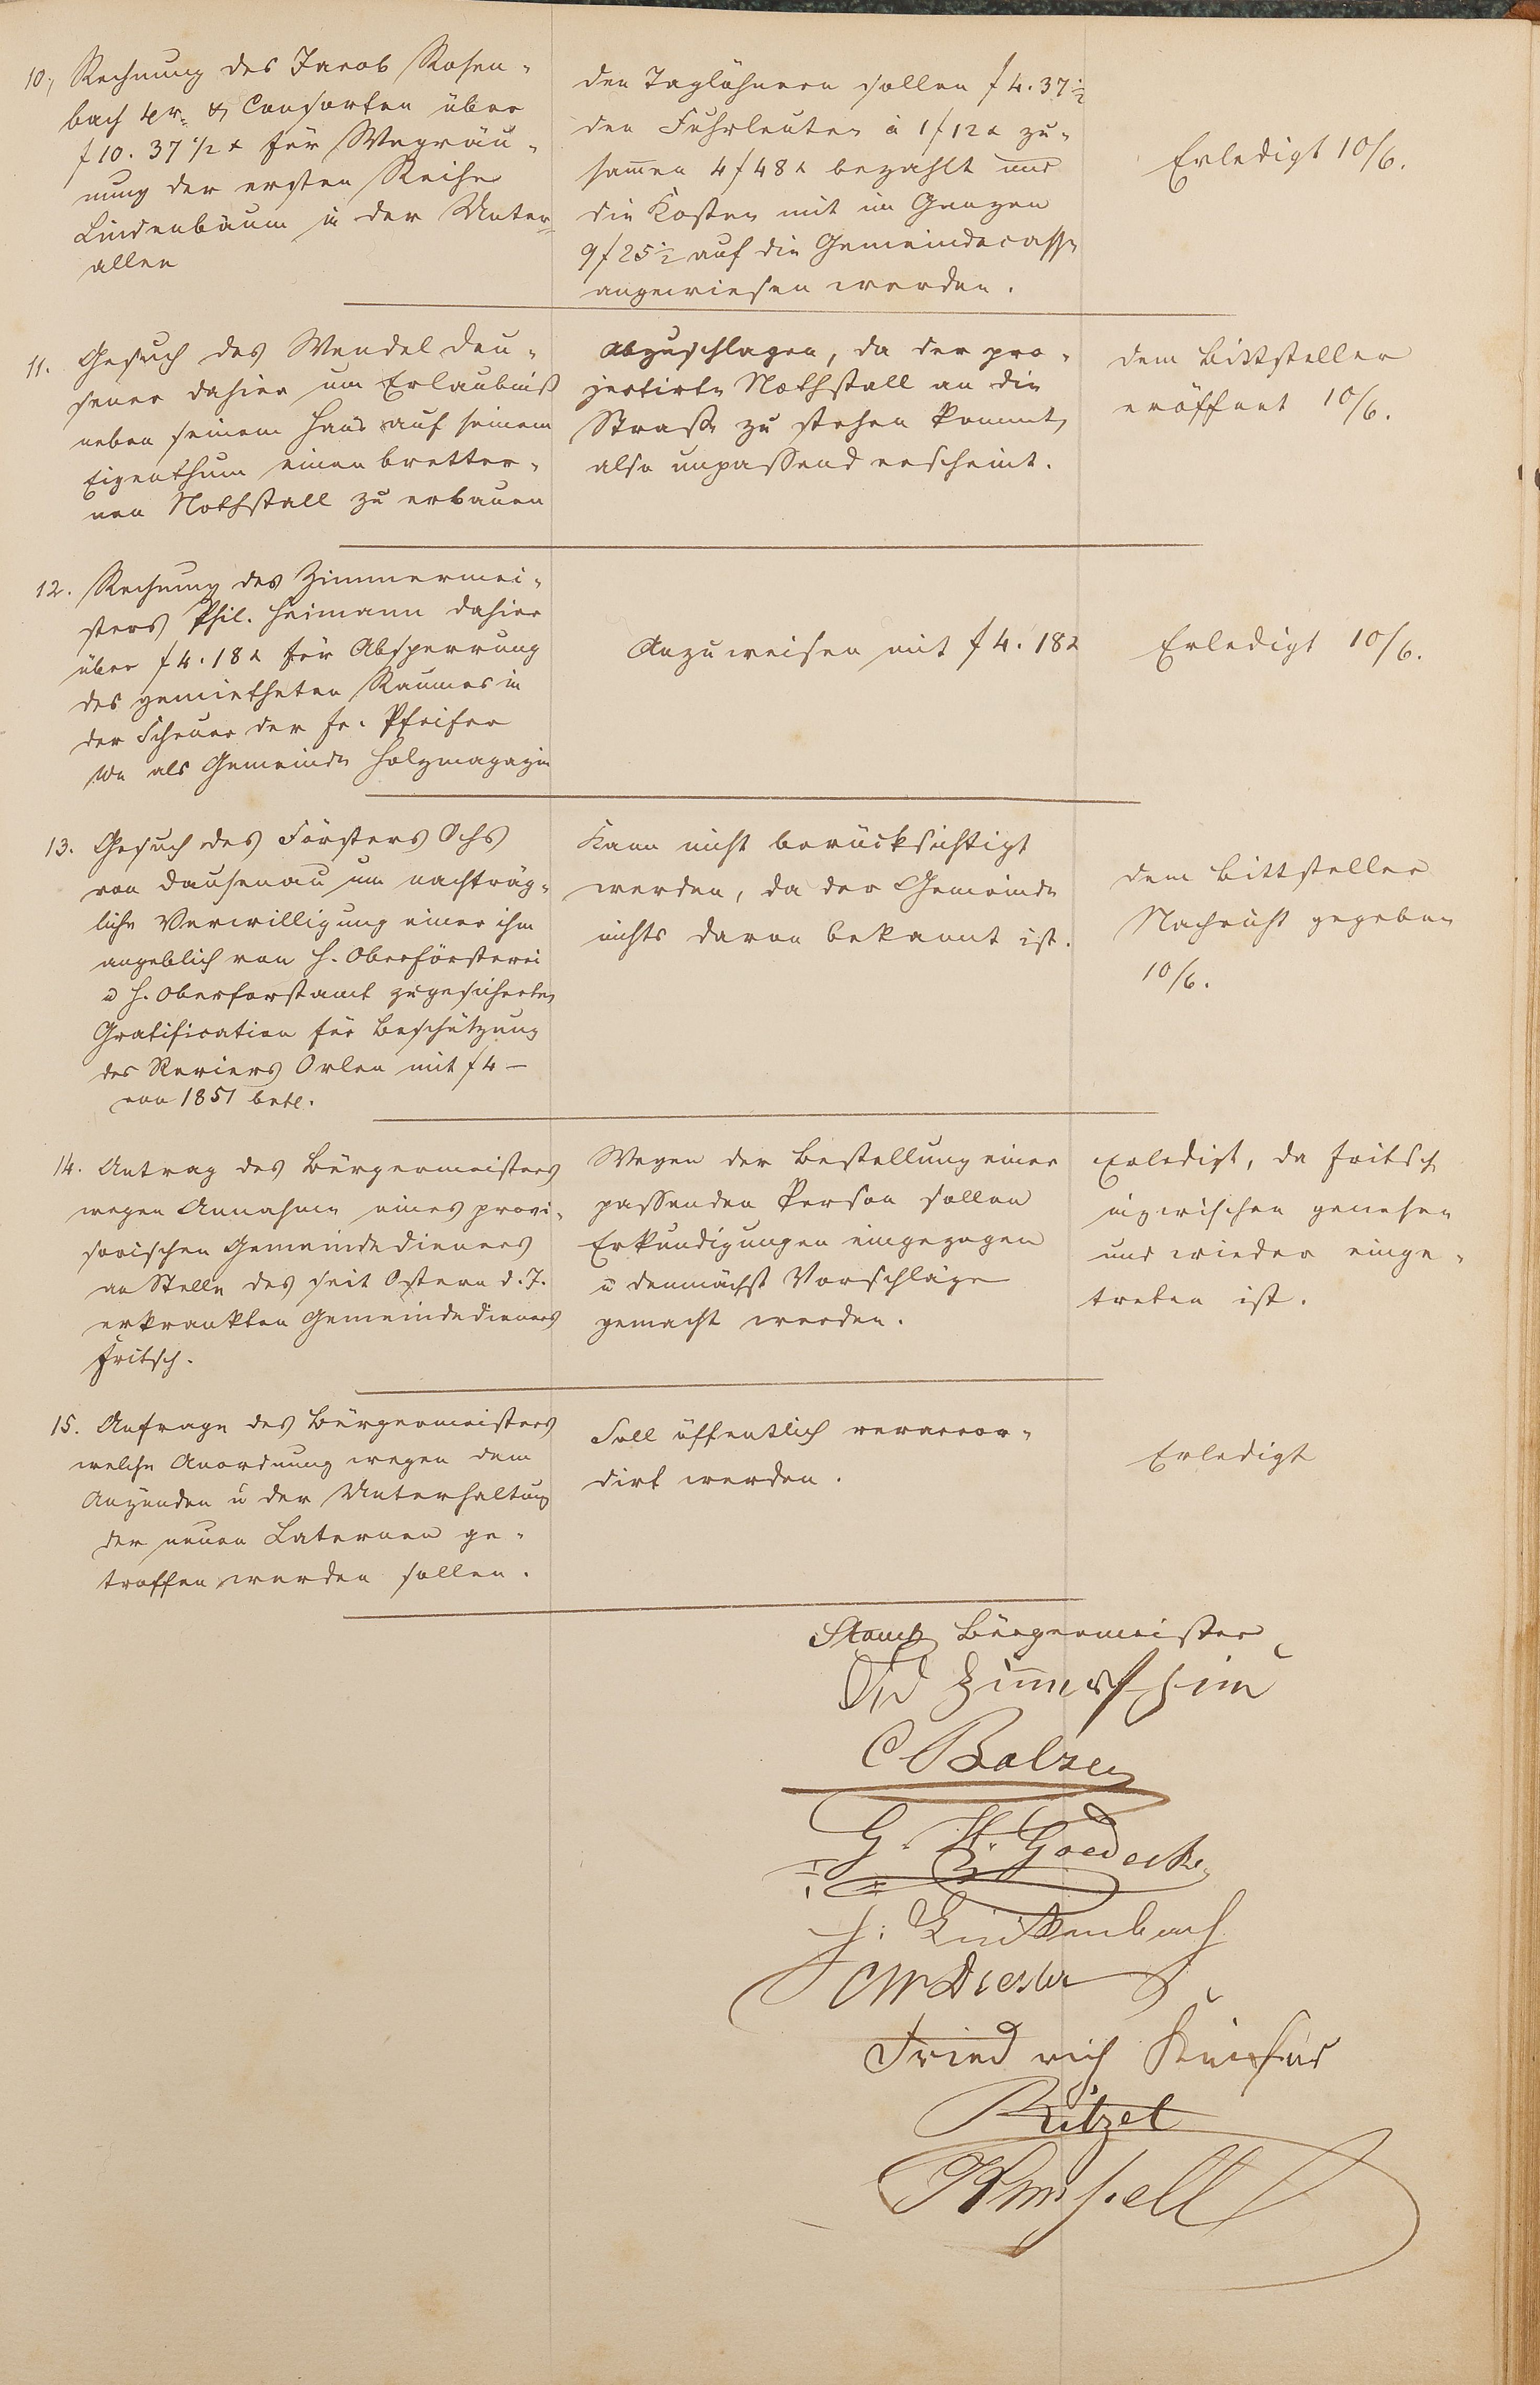 10, Rechnung des Jacob Rosen-
bach 4r. & Consorten über
f 10. 37 1/2 x für Wegräu-
mung der ersten Reihe
Lindenbäum in der Unter-
allee
den Taglöhnern sollen f 4. 37 1/2
den Fuhrleuten à 1 f 12 x zu-
samen 4 f 48 x bezahlt und
die Kosten mit im Ganzen
9 f 25 1/2 auf die Gemeindecasse
angewiesen werden.
Erledigt 10/6.
11. Gesuch des Wendel Deu-
sener dahier um Erlaubniß
neben seinem Haus auf seinem
Eigenthum einen bretter-
nen Nothstall zu erbauen
Abzuschlagen, da der pro-
jectirte Nothstall an die
Straße zu stehen kommt,
also unpassend erscheint.
dem Bittsteller
eröffnet 10/6.
12. Rechnung des Zimmermei-
sters Phil. Heimann dahier
über f 4. 18 x für Absperrung
des gemietheten Raumes in
der Scheuer der Fr. Pfeifer
We als Gemeinde Holzmagazin
Anzuweisen mit f 4. 18 x
Erledigt 10/6.
13. Gesuch des Försters Ochs
von Dausenau um nachträg-
liche Verwilligung einer ihm
angeblich von H. Oberförsterei
u H. Oberforstamt zugesicherten
Gratification für Beschützung
des Reviers Orlen mit f 4 —
von 1851 betr.
Kann nicht berücksichtigt
werden, da der Gemeinde
nichts davon bekannt ist.
dem Bittsteller
Nachricht gegeben
10/6.
14. Antrag des Bürgermeisters
wegen Annahme eines provi-
sorischen Gemeindedieners
an Stelle des seit Ostern d. J.
erkrankten Gemeindedieners
Fritsch.
Wegen der Bestellung einer
passenden Person sollen
Erkundigungen eingezogen
u demnächst Vorschläge
gemacht werden.
Erledigt, da Fritsch
inzwischen genesen
und wieder einge-
treten ist.
15. Anfrage des Bürgermeisters
welche Anordnung wegen dem
Anzünden u der Unterhaltung
der neuen Laternen ge-
troffen werden sollen.
Soll öffentlich veraccor-
dirt werden.
Erledigt
Bürgermeister
C Balzer
G. H. Goedecke
H. Linkenbach
Friedrich
Rützel